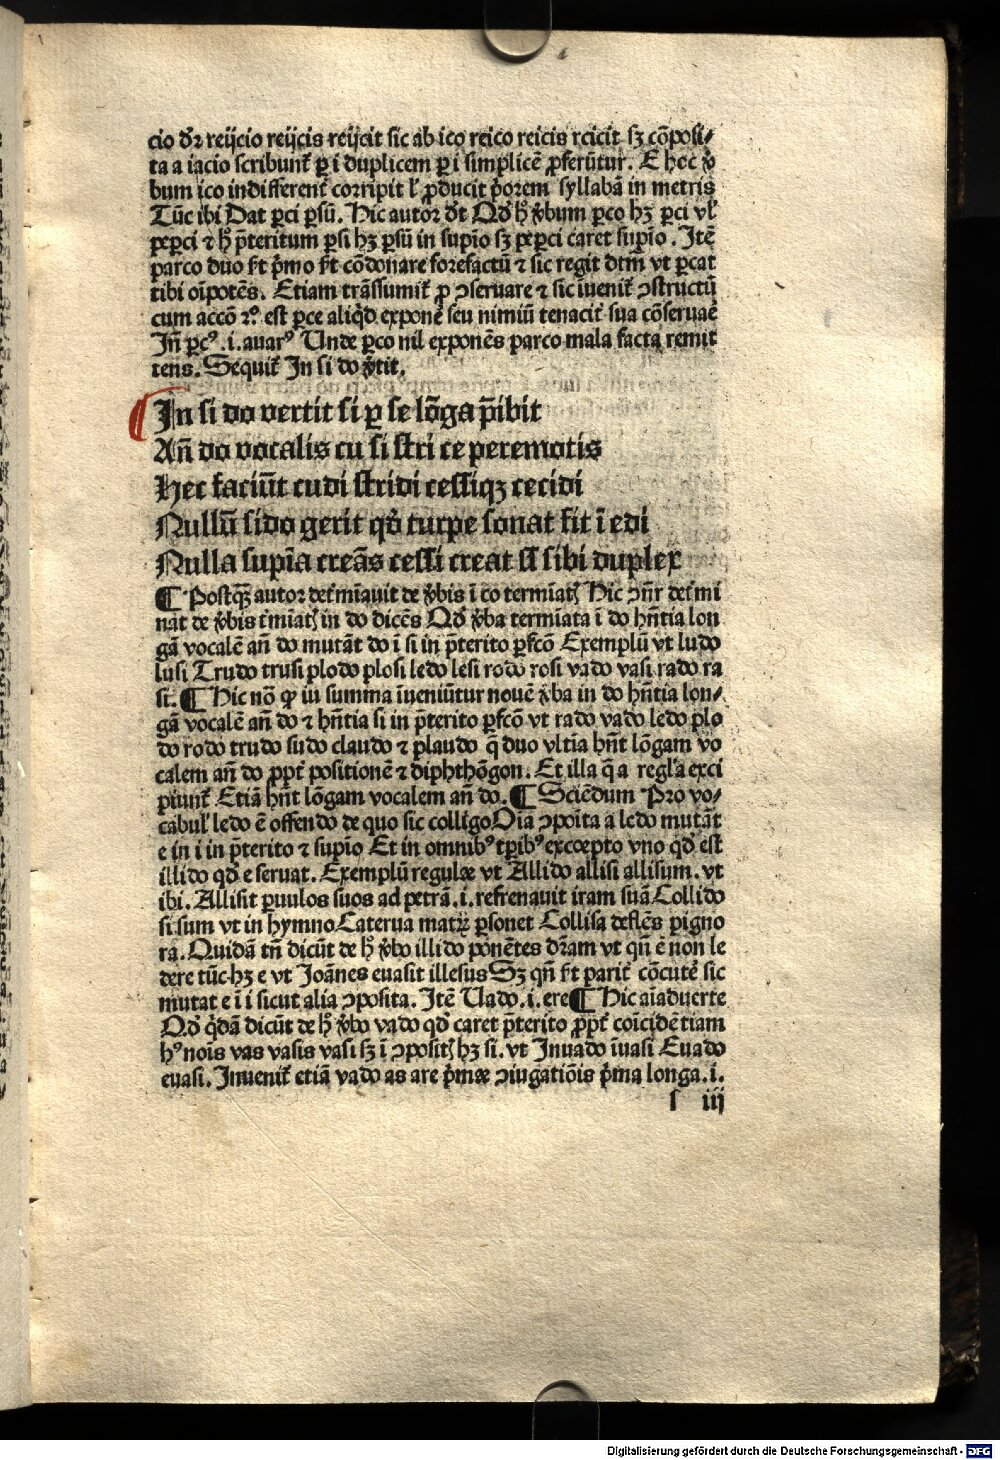 cio dr̄ reijcio reijcis reijcit sic ab ico reico reicis reicit sꝫ cōposi⸗
ta a iacio scribunt̄ ꝑ i duplicem ꝑ i simplicē ꝓferūtur. E hec v̓
bum ico indifferent̓ corripit l̓ ꝓducit p̓orem syllabā in metris
Tūc ibi Dat ꝑci ꝑsū. Hic autor dt̄ Qd̓ h̓ v̓bum ꝑco hꝫ ꝑci vl̓
peꝑci ⁊ h̓ p̄teritum ꝑsi hꝫ ꝑsū in supīo sꝫ peꝑci caret supīo. Itē
parco duo st̄ p̓mo st̄ cōdonare forefactū ⁊ sic regit dtm̄ vt ꝑcat
tibi oīpotēs. Etiam trāssumit̄ ꝓ ꝯseruare ⁊ sic iuenit̄ ꝯstructū
cum accō ⁊ꝰ est ꝑce aliq̓d exponē seu nimiū tenacit̓ sua cōseruaē
Iñ ꝑcꝰ .i. auarꝰ Unde ꝑco nil exponēs parco mala facta remit
tens. Sequit̄ In si do v̓tit.
In si do vertit si ꝑ se lōga p̄ibit
Añ do vocalis cu si stri ce peremotis
Hec faciūt cudi stridi cessiqꝫ cecidi
Nullū sido gerit qd̓ turpe sonat fit ī edi
Nulla supīa creās cessi creat ss sibi duplex
¶ Postqꝫ autor det̓mīauit de v̓bis ī co termīatꝭ Hic ꝯn̄r det̓mi
nat de v̓bis t̓mīatꝭ in do dicēs Qd̓ v̓ba termīata ī do hn̄tia lon
gā vocalē añ do mutāt do ī si in p̄terito ꝑfcō Exemplū vt ludo
lusi Trudo trusi plodo plosi ledo lesi rodo rosi vado vasi rado ra
si. ¶ Hic nō ꝙ in summa īueniūtur nouē v̓ba in do hn̄tia lon⸗
gā vocalē añ do ⁊ hn̄tia si in p̄terito ꝑfcō vt rado vado ledo plo
do rodo trudo sudo claudo ⁊ plaudo q̄ duo vltīa hn̄t lōgam vo
calem añ do ꝓpt̓ positionē ⁊ diphthōgon. Et illa q̄ a regl̓a exci
piunt̄ Etiā hn̄t lōgam vocalem añ do. ¶ Sciēdum Pro vo⸗
cabul̓ ledo ē offendo de quo sic colligo Oīa ꝯpoita a ledo mutāt
e in i in p̄terito ⁊ supīo Et in omnibꝰ tꝑibꝰ excoepto vno qd̓ est
illido qd̓ e seruat. Exemplū regulæ vt Allido allisi allisum. vt
ibi. Allisit ꝑuulos suos ad petrā .i. refrenauit iram suā Collido
si sum vt in hymno Caterua matꝝ ꝑsonet Collisa deflēs pigno
ra. Quidā tn̄ dicūt de h̓ v̓bo illido ponētes dr̄am vt qn̄ ē non le
dere tūc hꝫ e vt Ioānes euasit illesus Sꝫ qn̄ st̄ parit̓ cōcutē sic
mutat e ī i sicut alia ꝯposita. Itē Uado .i. ere ¶ Hic aīaduerte
Qd̓ q̓dā dicūt de h̓ v̓bo vado qd̓ caret p̄terito ꝓpt̓ coīcidētiam
hꝰ nois vas vasis vasi sꝫ ī ꝯpositꝭ hꝫ si. vt Inuado īuasi Euado
euasi. Inuenit̄ etiā vado as are p̓mæ ꝯiugatiōis p̓ma longa .i.
s iij
Digitalisierung gefördert durch die Deutsche Forschungsgemeinschaft - DFG